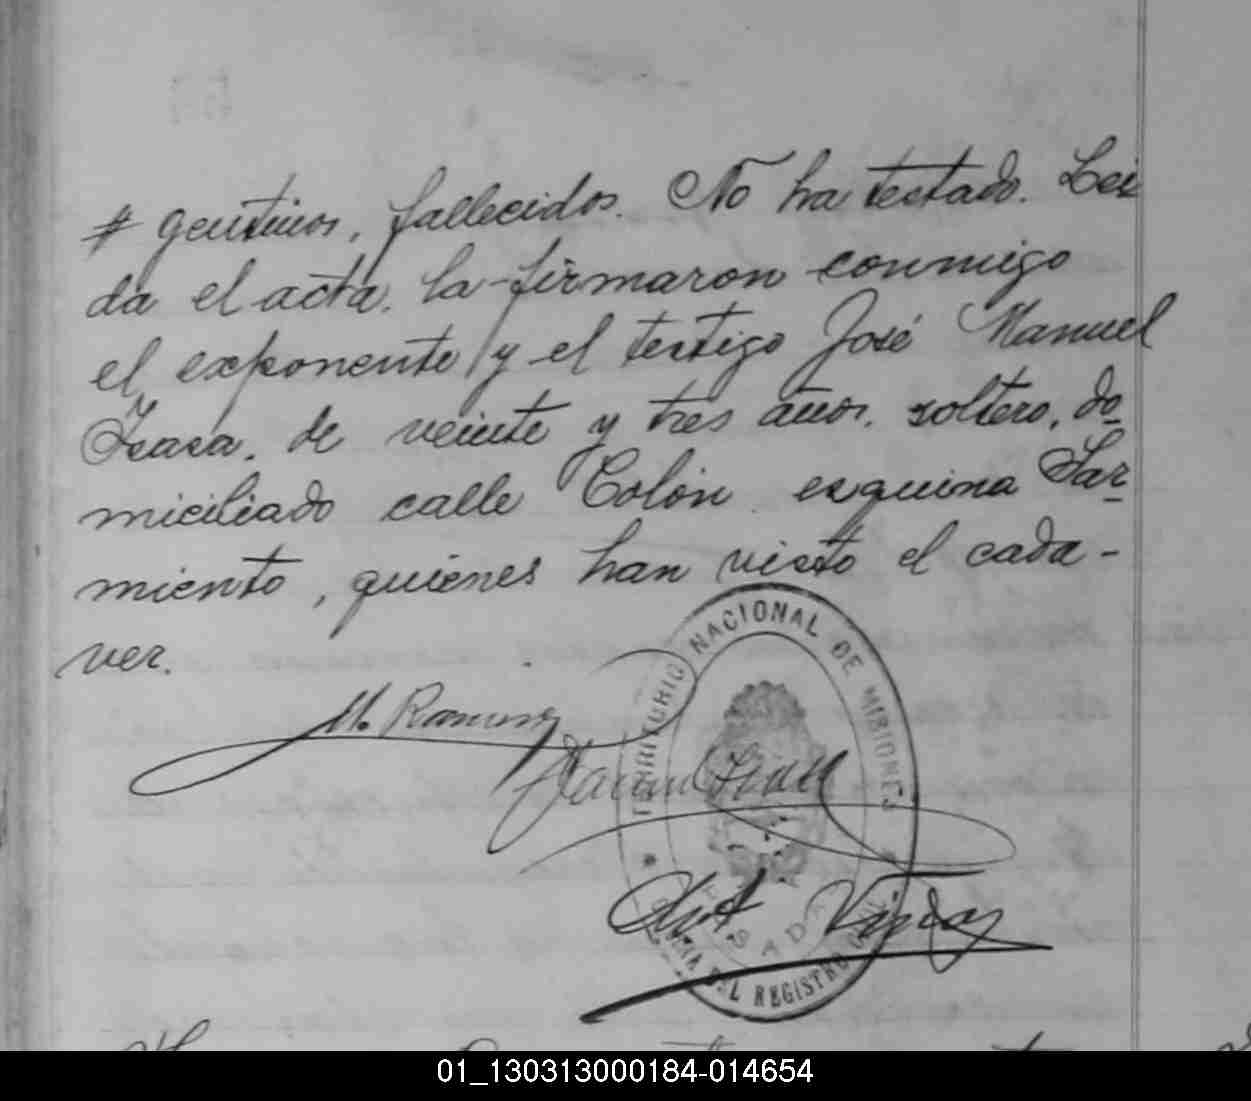 # gentinos, fallecidos. No ha testado. Lei
da el acta. la firmaron conmigo
el exponente y el testigo José Manuel
Isasa, de veinte y tres años, soltero, do-
miciliado calle Colón esquina Sar-
miento, quienes han visto el cada-
ver.
M. Ramirez
TERRITORIO NACIONAL DE MISIONES
POSADAS
OFICINA DEL REGISTRO CIVIL
01_130313000184-014654